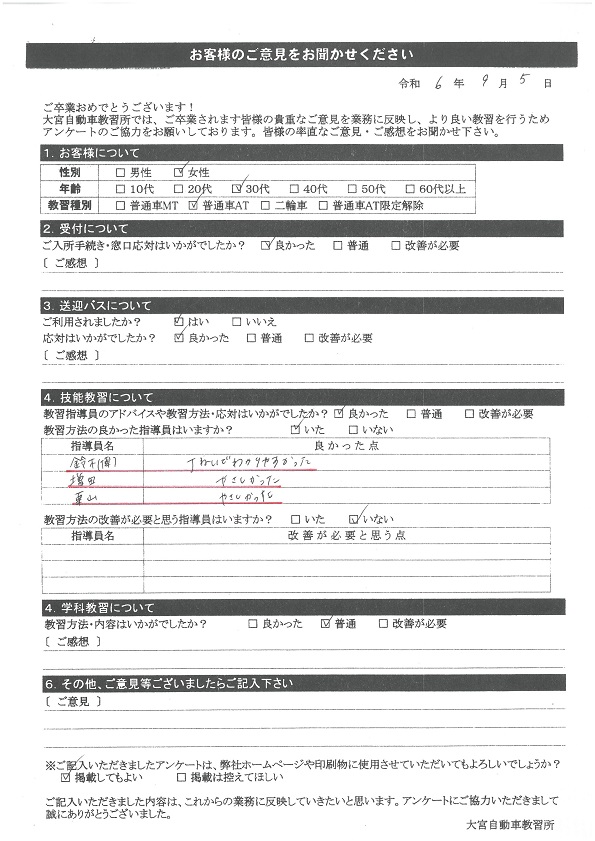 お客様のご意見をお聞かせください
令和 6 年 9 月 5 日
ご卒業おめでとうございます！
大宮自動車教習所では、ご卒業されます皆様の貴重なご意見を業務に反映し、より良い教習を行うため
アンケートのご協力をお願いしております。皆様の率直なご意見・ご感想をお聞かせ下さい。
1. お客様について
性別 □ 男性 ☑ 女性
年齢 □ 10代 □ 20代 ☑ 30代 □ 40代 □ 50代 □ 60代以上
教習種別 □ 普通車MT ☑ 普通車AT □ 二輪車 □ 普通車AT限定解除
2. 受付について
ご入所手続き・窓口応対はいかがでしたか？ ☑ 良かった □ 普通 □ 改善が必要
〔 ご感想 〕
3. 送迎バスについて
ご利用されましたか？ ☑ はい □ いいえ
応対はいかがでしたか？ ☑ 良かった □ 普通 □ 改善が必要
〔 ご感想 〕
4. 技能教習について
教習指導員のアドバイスや教習方法・応対はいかがでしたか？ ☑ 良かった □ 普通 □ 改善が必要
教習方法の良かった指導員はいますか？ ☑ いた □ いない
指導員名 良かった点
鈴木(博) ていねいでわかりやすかった
増田 やさしかった
東山 やさしかった
教習方法の改善が必要と思う指導員はいますか？ □ いた ☑ いない
指導員名 改善が必要と思う点
4. 学科教習について
教習方法・内容はいかがでしたか？ □ 良かった ☑ 普通 □ 改善が必要
〔 ご感想 〕
6. その他、ご意見等ございましたらご記入下さい
〔 ご意見 〕
※ご記入いただきましたアンケートは、弊社ホームページや印刷物に使用させていただいてもよろしいでしょうか？
☑ 掲載してもよい □ 掲載は控えてほしい
ご記入いただきました内容は、これからの業務に反映していきたいと思います。アンケートにご協力いただきまして
誠にありがとうございました。
大宮自動車教習所